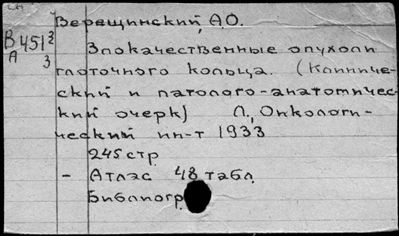 Верещинский, А.О.
В 451 2
А 3
Злокачественные опухоли
глоточного кольца. (Клиниче-
ский и патолого-анатомичес-
кий очерк) Л., Онкологи-
ческий ин-т 1933
245 стр
- Атлас 48 табл.
Библиогр.